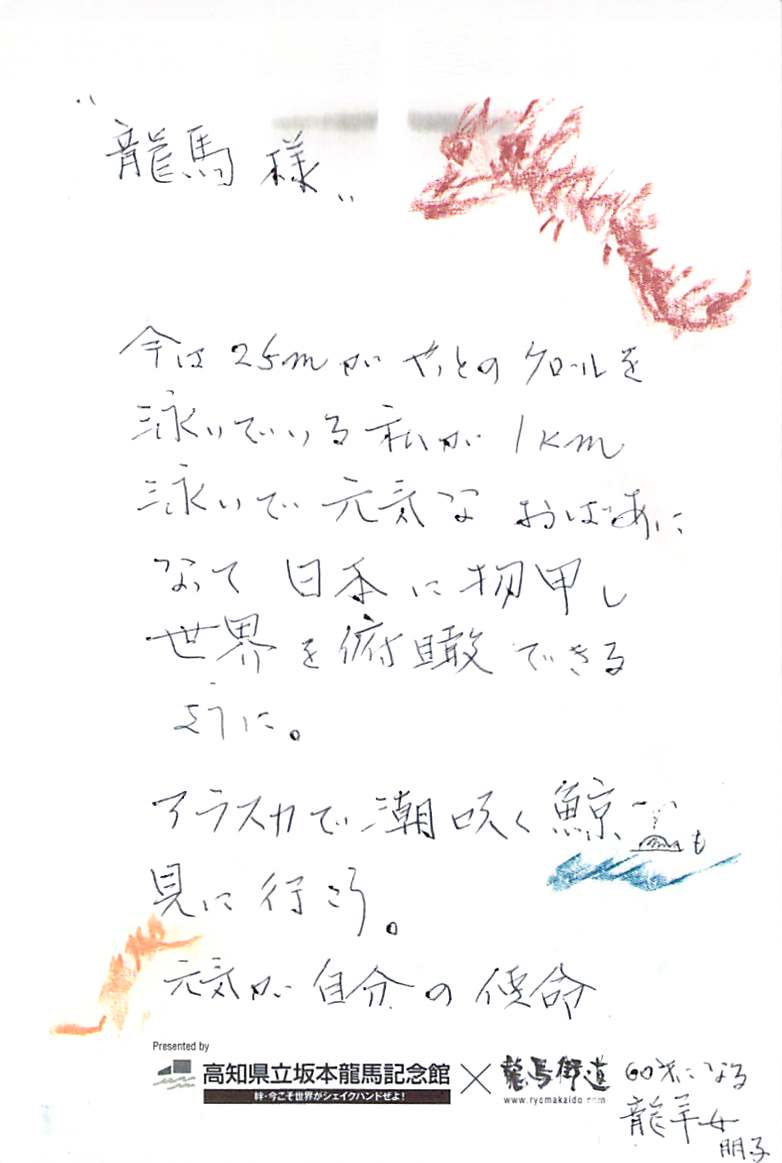 "龍馬様"
今は25mがやっとのクロールを
泳いでいる私が1Km
泳いで元気なおばあに
なって日本に し
世界を俯瞰できる
ように。
アラスカで潮咲く鯨も
見に行こう。
元気が自分の使命
Presented by
高知県立坂本龍馬記念館×龍馬街道
絆・今こそ世界がシェイクハンドぜよ!
www.ryomakaido.com
60才になる
龍羊女
朋子